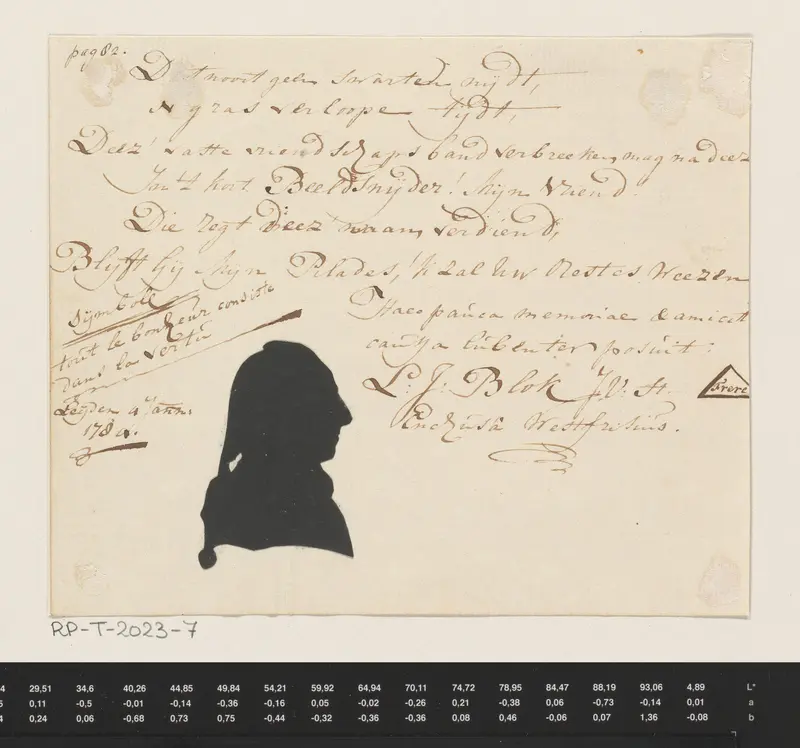 pag 82.
Dat nooit geen swarten nijdt,
N gras verloope tijdt,
Deez' vaste vriendschaps band verbreeken, mag na deez
In 't kort Beeldsnijder! Mijn Vriend.
Die regt deez naam verdiend,
Blijft hij Mijn Pilades, 'k zal Uw Orestes Weezen
Symbole
tout le bonheur consiste
dans la vertu
Haec pauca memoriae & amicit
causa lubenter posuit:
L: J: Blok J: V: St.
Enchusâ Westfrisius.
Frere
Leyden 4 Jann:
178
RP-T-2023-7
4 29,51 34,6 40,26 44,85 49,84 54,21 59,92 64,94 70,11 74,72 78,95 84,47 88,19 93,06 4,89 L*
5 0,11 -0,5 -0,01 -0,14 -0,36 -0,16 0,05 -0,02 -0,26 0,21 -0,38 0,06 -0,73 -0,14 0,01 a
4 0,24 0,06 -0,68 0,73 0,75 -0,44 -0,32 -0,36 -0,36 0,08 0,46 -0,06 0,07 1,36 -0,08 b